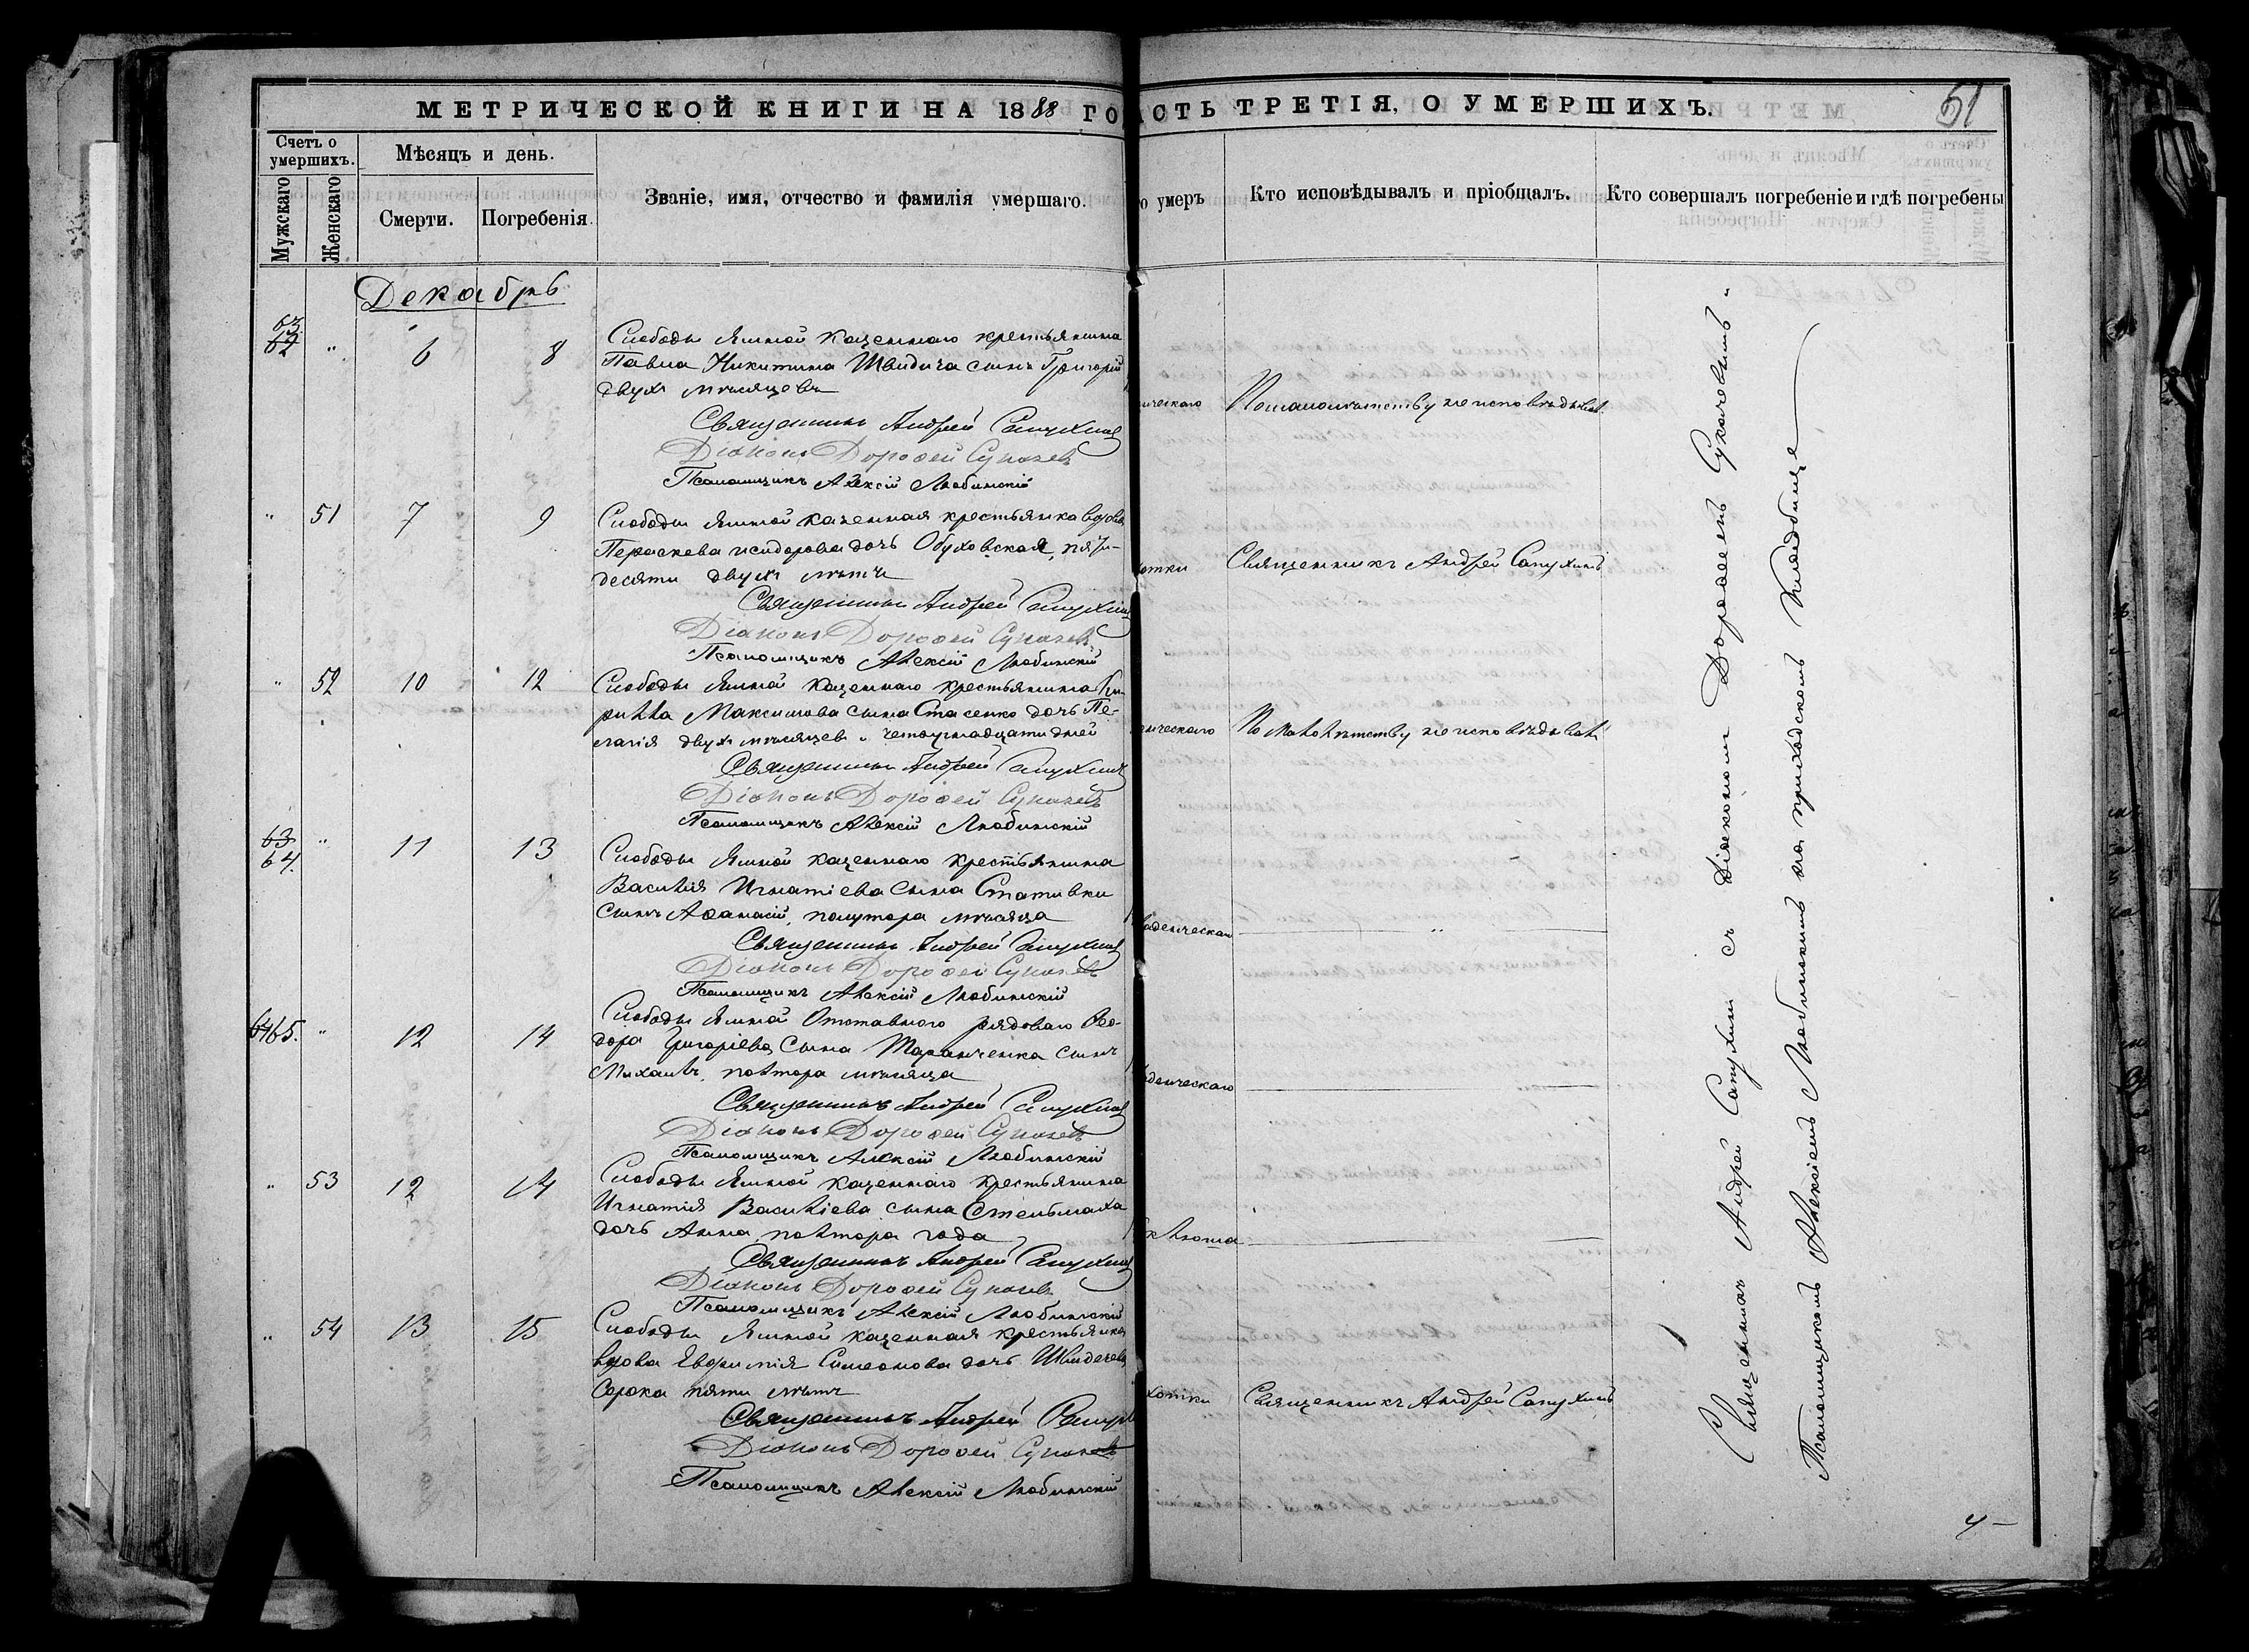 МЕТРИЧЕСКОЙ КНИГИ НА 1888 ГО
АСТЬ ТРЕТІЯ, О УМЕРШИХЪ.
51
Счетъ о умершихъ.
Мужскаго
Женскаго
Мѣсяцъ и день.
Смерти.
Погребенія.
Званіе, имя, отчество и фамилія умершаго.
о умеръ
Кто исповѣдывалъ и пріобщалъ.
Кто совершалъ погребеніе и гдѣ погребены
Декабрь
63 62 " 6 8
Слободы Ямной казеннаго крестьянина
Павла Никитина Швидича сынъ Григорій
двухъ мѣсяцевъ
Священникъ Андрей Сапухинъ
Діаконъ Дорофей Сукачевъ
Псаломщикъ Алексій Любинскій
ческаго
По малолѣтству не исповѣдыван
" 51 7 9
Слободы Ямной казенная крестьянка вдова
Пераскева Исидорова дочь Обуховская, пяти-
десяти двухъ лѣтъ
Священникъ Андрей Сапухинъ
Діаконъ Дорофей Сукачевъ
Псаломщикъ Алексій Любинскій
отки
Священникъ Андрей Сапухинъ
" 52 10 12
Слободы Ямной казеннаго крестьянина Ки-
рилла Максимова сына Стасенко дочь Пе-
лагія двухъ мѣсяцев и четырнадцати дней
Священникъ Андрей Сапухинъ
Діаконъ Дорофей Сукачевъ
Псаломщикъ Алексій Любинскій
нческаго
По малолѣтству не исповѣдыван
63 64. " 11 13
Слободы Ямной казеннаго крестьянина
Василія Игнатіева сына Стативки
сынъ Афанасій, полутора мѣсяца
Священникъ Андрей Сапухинъ
Діаконъ Дорофей Сукачевъ
Псаломщикъ Алексій Любинскій
аденческаго
"
64 65. " 12 14
Слободы Ямной Отставного рядоваго Ѳео-
дора Григоріева сына Таранченка сынъ
Михаилъ, полтора мѣсяца
Священникъ Андрей Сапухинъ
Діаконъ Дорофей Сукачевъ
Псаломщикъ Алексій Любинскій
денческаго
" 53 12 14
Слободы Ямной казеннаго крестьянина
Игнатія Василіева сына Стельмаха
дочь Анна, полтора года
Священникъ Андрей Сапухинъ
Діаконъ Дорофей Сукачевъ
Псаломщикъ Алексій Любинскій
клюша
" 54 13 15
Слободы Ямной казенная крестьянка
вдова Евфимія Симеонова дочь Швидечева
сорока пяти лѣтъ
Священникъ Андрей Сапухинъ
Діаконъ Дорофей Сукачевъ
Псаломщикъ Алексій Любинскій
хотки
Священникъ Андрей Сапухинъ
Священникъ Андрей Сапухинъ съ Діакономъ Дорофеемъ Сукачевымъ и
Псаломщикомъ Алексіемъ Любинскимъ на приходскомъ кладбище